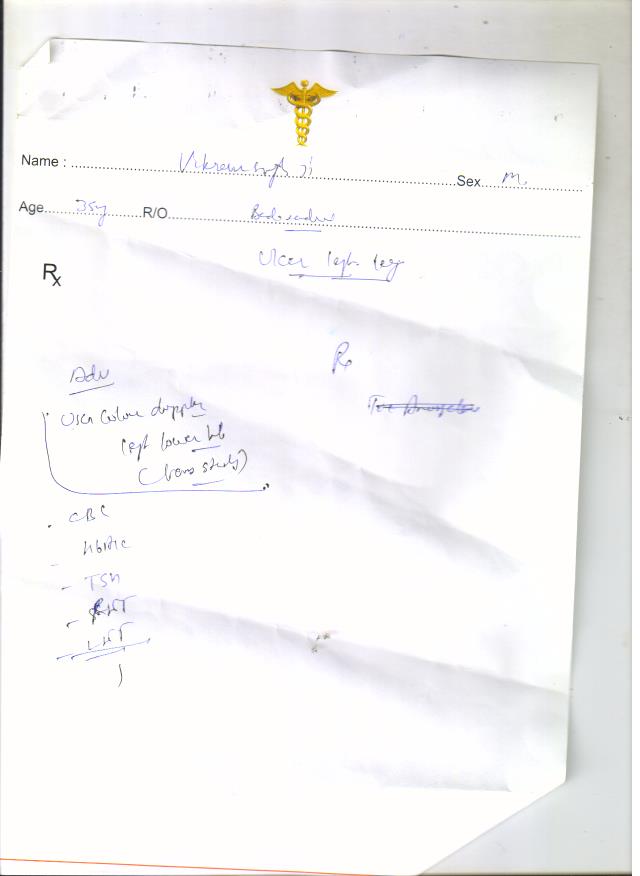 Name : Vikram Singh Ji Sex M.
Age 35y R/O
Ulcer left leg
Rx
R
Adv
USG Colour doppler
left lower limb
(Venous study)
CBC
HbA1c
- TSH
- RFT
LFT